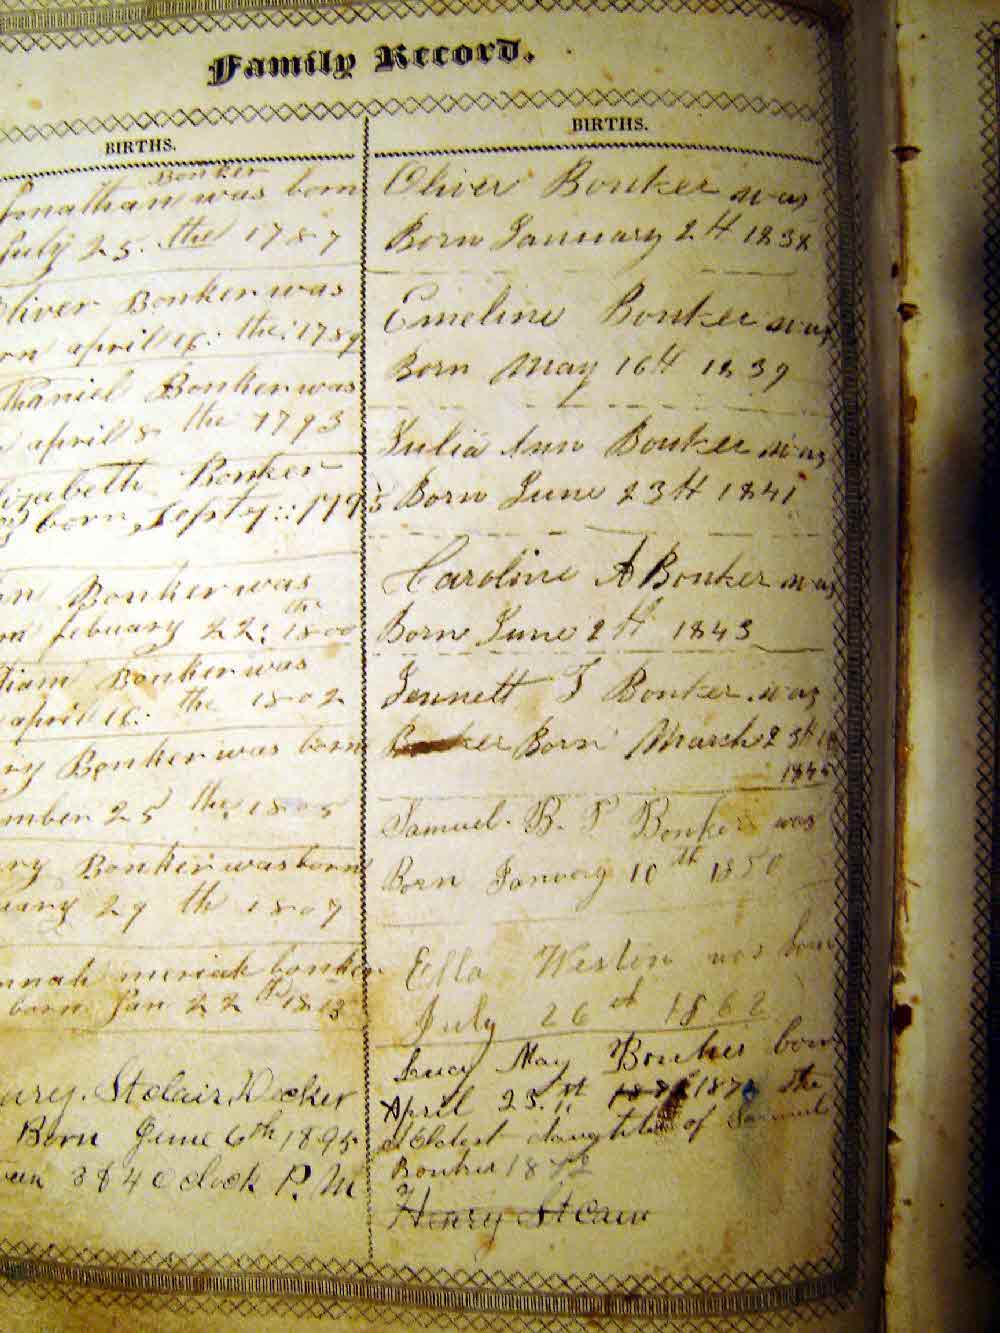 Family Record.
BIRTHS.
Bonker
Jonathan was born
July 25. the 1787
Oliver Bonker was
april 16. the: 1789
Bonker was
april 8 the 1793
Bonker
born, Sepr 7:: 1795
Bonker was
february 22: the 1800
Bonker was
april 16: the 1802
Bonker was born
25 the 1805
Bonker was born
29 th 1807
bonker
born Jan 22 th 1813
Stclair Decker
Born June 6th 1895
3 & 4 O clock P. M
BIRTHS.
Oliver Bonker was
Born January 2th 1838
Emeline Bonker was
Born May 16th 1839
Julia Ann Bonker was
Born June 23th 1841
Caroline A Bonker was
Born June 9th 1843
Jennett T Bonker was
Born March 23th
1845
Samuel B. P Bonker was
Born January 10th 1850
Ella Weslin was born
July 26th 1862
Lucy May Bonker born
April 25. the
Eldest daughter of Samuel
Bonker
Henry St